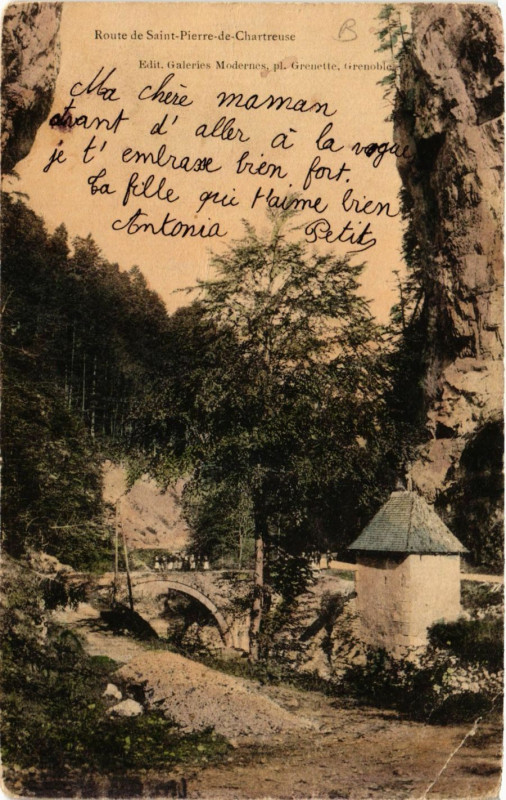 Route de Saint-Pierre-de-Chartreuse
B
Edit. Galeries Modernes, pl. Grenette, Grenoble
Ma chère maman
avant d'aller à la vogue
je t'embrasse bien fort.
Ta fille qui t'aime bien
Antonia Petit